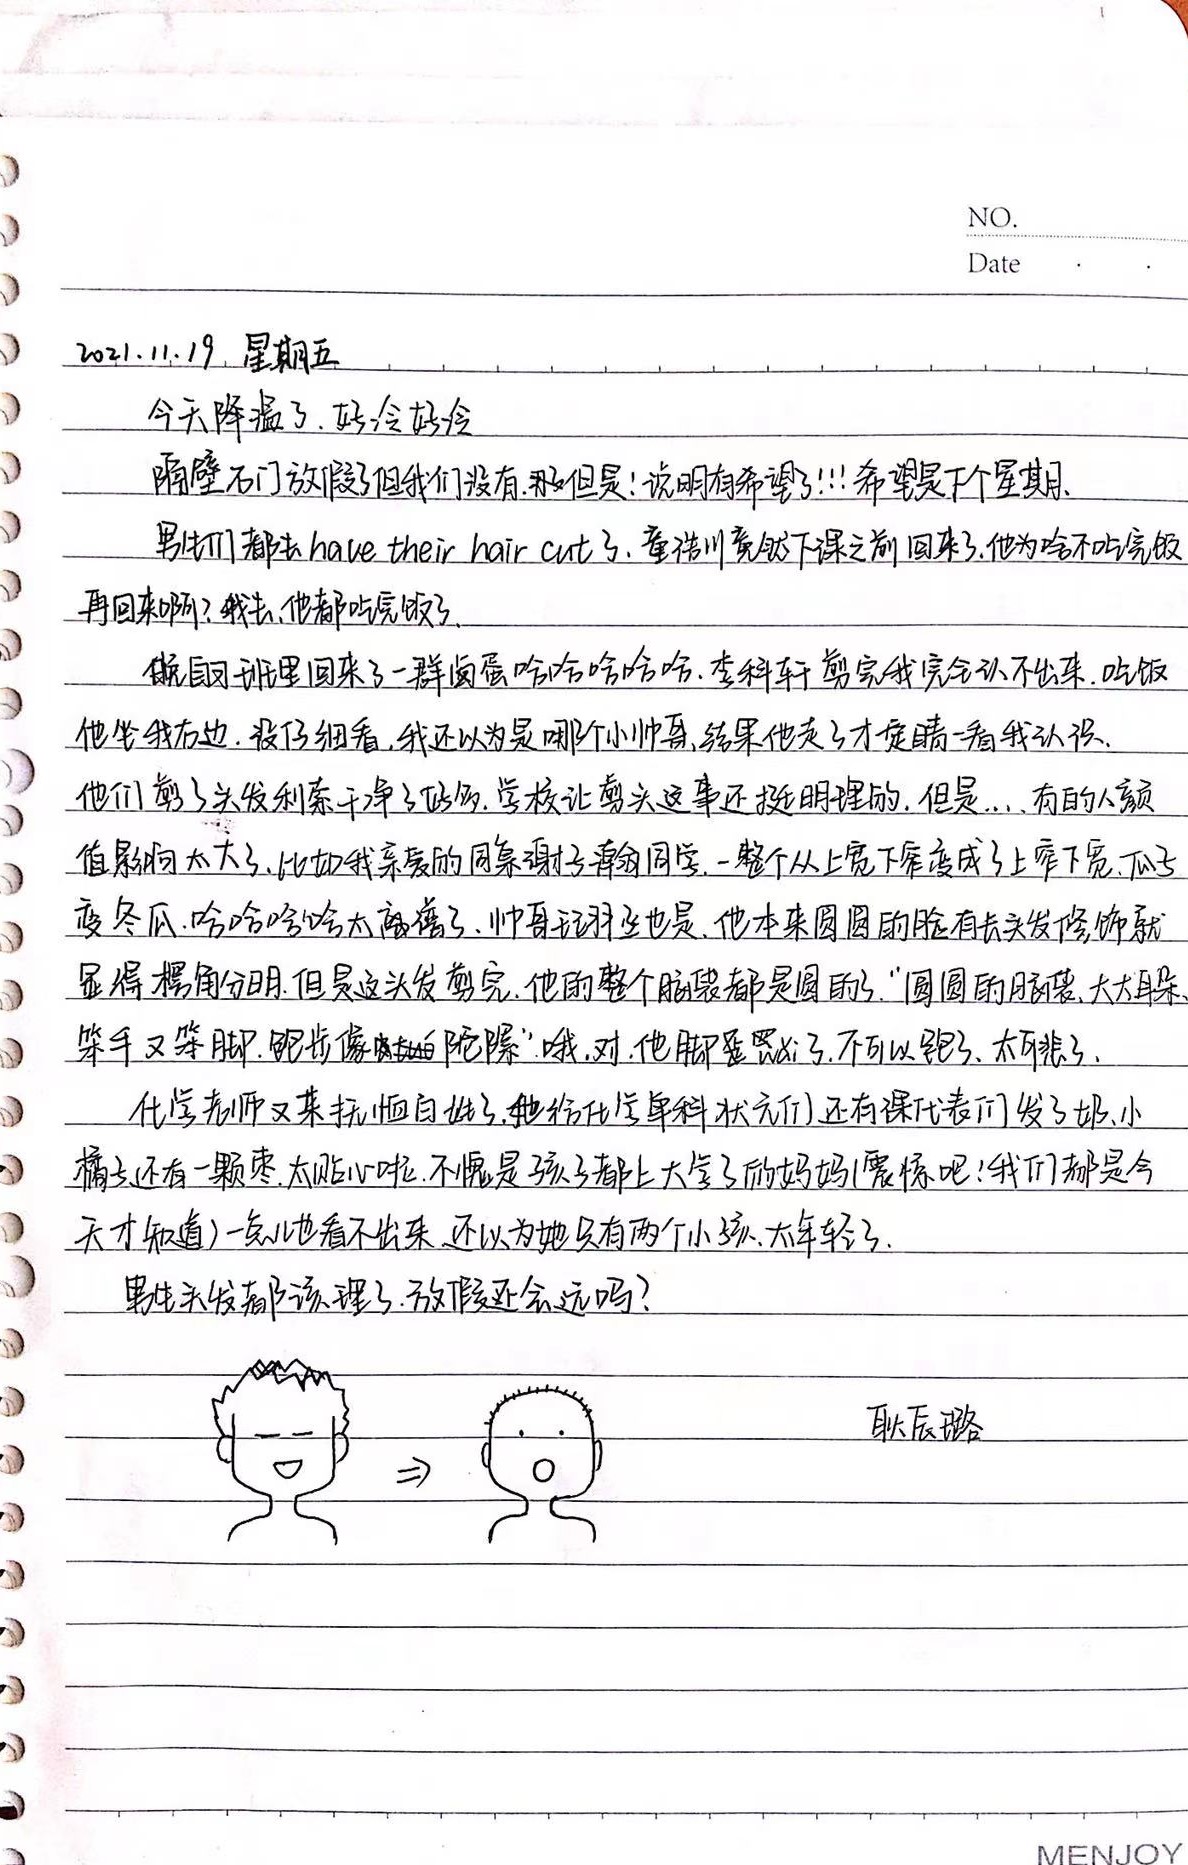 NO.
Date
2021.11.19 星期五
今天降温了.好冷好冷
隔壁石门放假了但我们没有.但是!说明有希望了!!!希望是下个星期.
男生们都去have their hair cut了.童浩川竟然下课之前回来了.他为啥不吃完饭
再回来啊?我去,他都吃完饭了.
晚自习班里回来了一群卤蛋哈哈哈哈哈.李科轩剪完我完全认不出来.吃饭
他坐我右边.没仔细看,我还以为是哪个小帅哥,结果他走了才定睛一看我认识.
他们剪了头发利索干净了好多.学校让剪头这事还挺明理的.但是...有的人颜
值影响太大了.比如我亲爱的同桌谢子翰同学.一整个从上宽下窄变成了上窄下宽.瓜子
变冬瓜.哈哈哈哈太离谱了.帅哥也是.他本来圆圆的脸有去头发修饰就
显得棱角分明.但是这头发剪完.他的整个脑袋都是圆的了."圆圆的脑袋、大大耳朵、
笨手又笨脚.跑步像陀螺".哦,对,他脚歪了.不可以跑了.太可悲了.
化学老师又来抚恤百姓了.她给化学单科状元们还有课代表们发了奶、小
橘子还有一颗枣.太贴心啦.不愧是孩子都上大学了的妈妈(震惊吧!我们都是今
天才知道)一点儿也看不出来.还以为她只有两个小孩.太年轻了.
男生头发都该理了.放假还会远吗?
耿辰璐
MENJOY